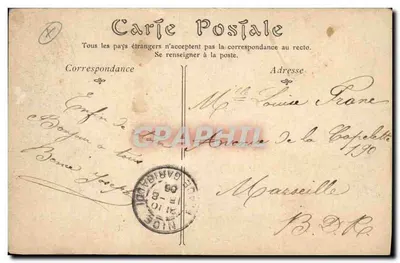 Carte Postale
Tous les pays étrangers n'acceptent pas la correspondance au recto.
Se renseigner à la poste.
Correspondance
Adresse
Enfin de
Bonjour à tous
Bonne
Mlle Louise
Avenue de la Capelette
190
Marseille
B.D.R
NICE
PLACE GARIBALDI